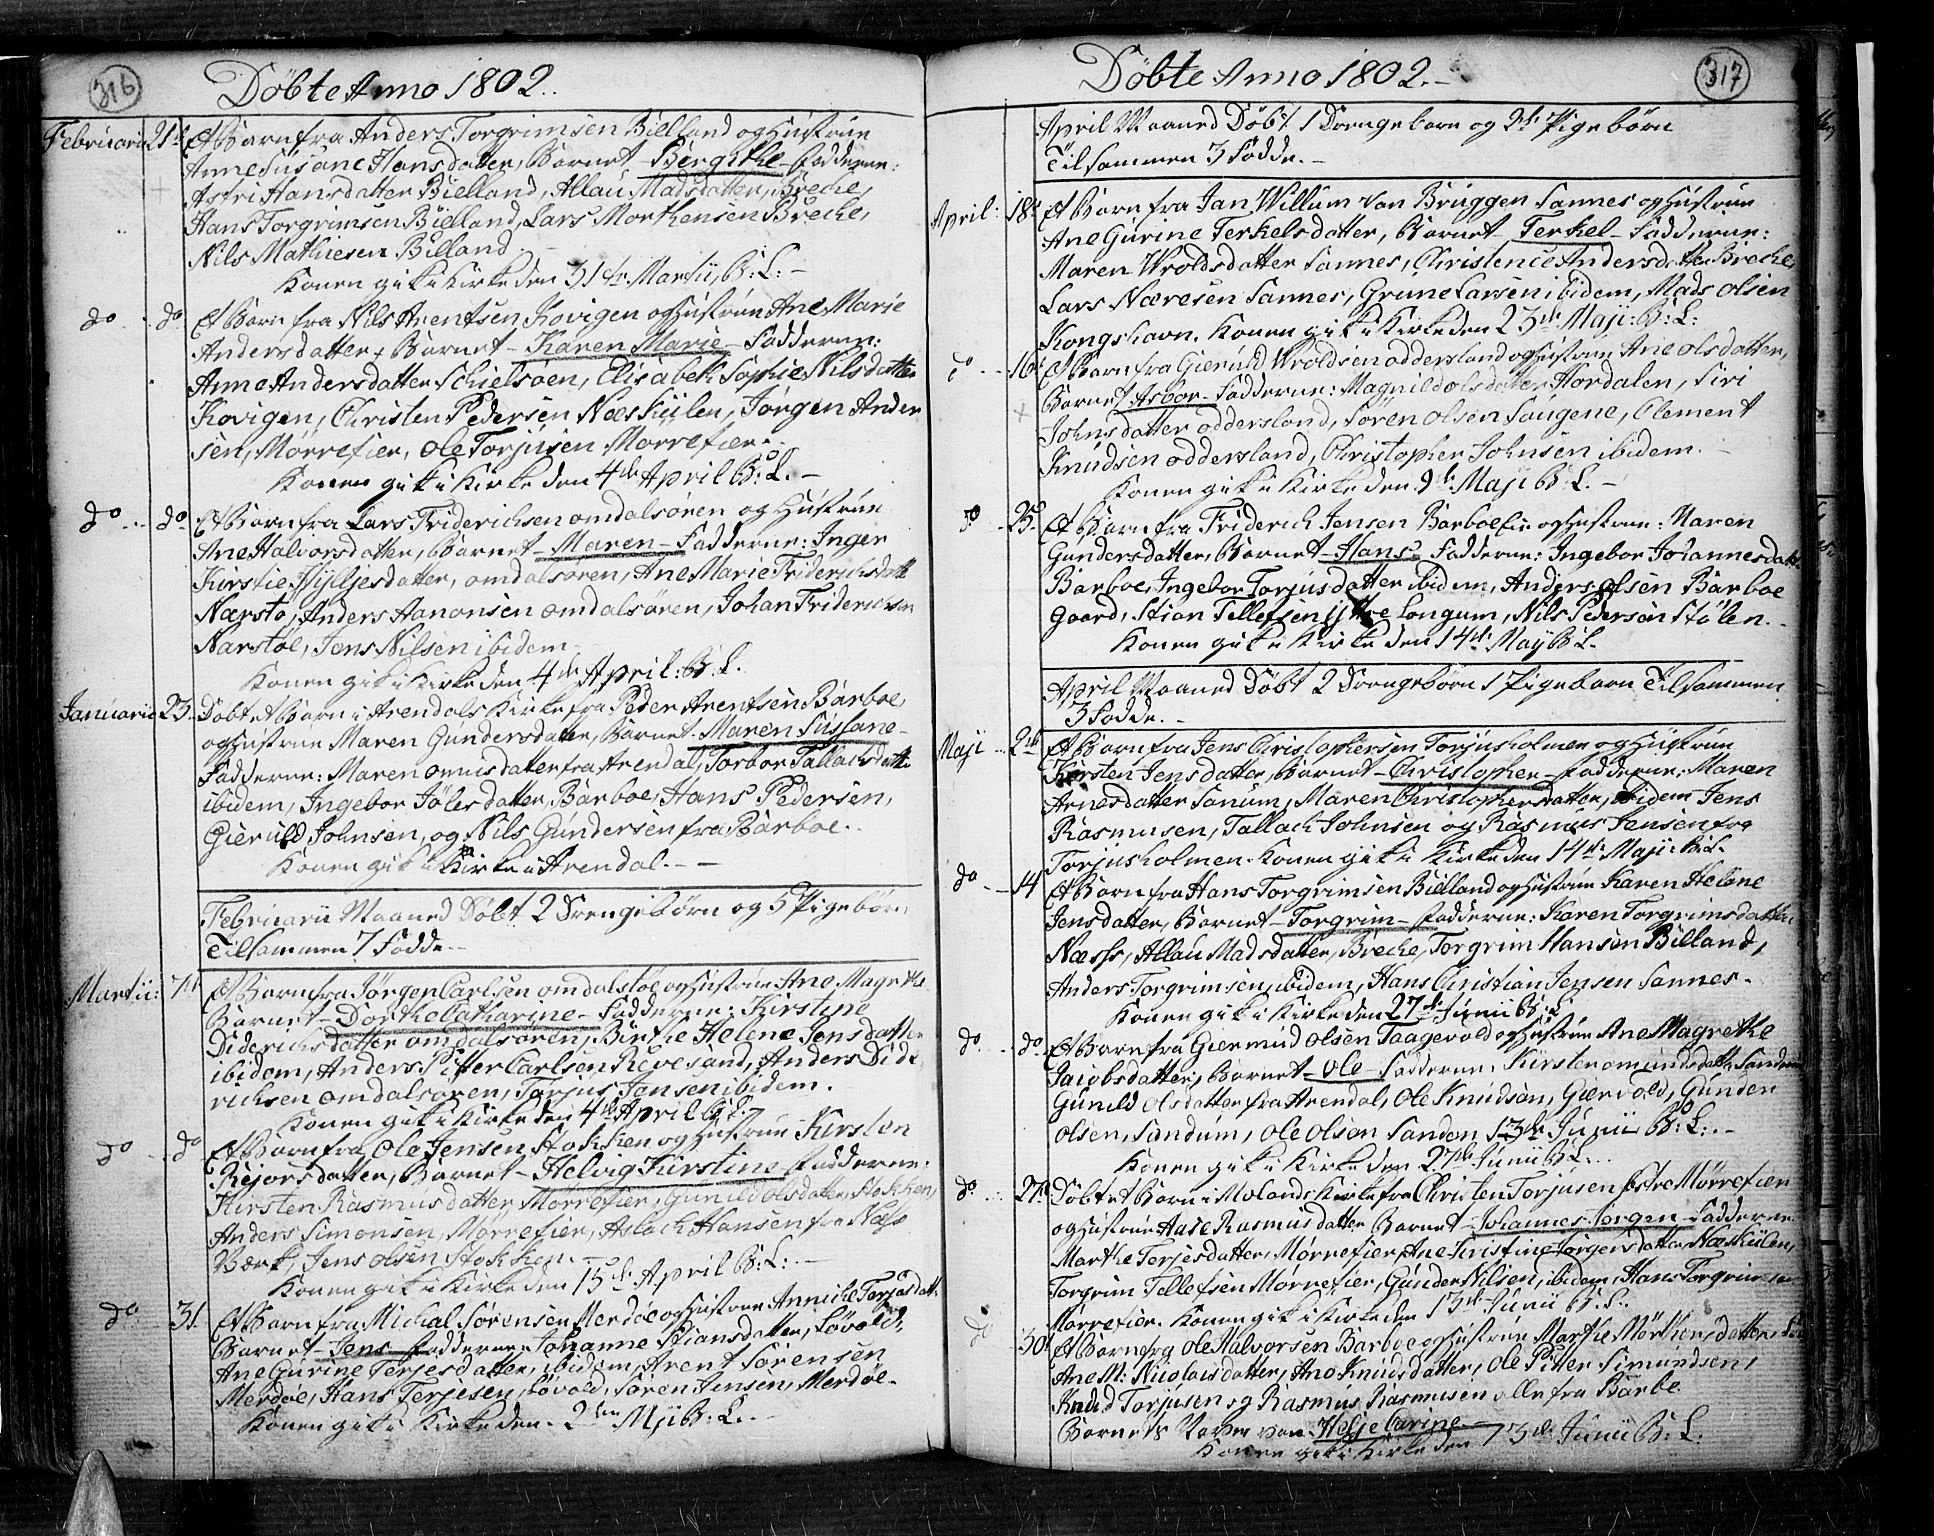 316
Döbte Anno 1802.
Februarii 21de Et Barn fra Anders Torgrimsen Bielland og Hustrue
Anne Susane Hansdatter, Barnet Bergithe Fadderne:
Astri Hansdatter Bielland, Allau Madsdatter, Breche,
Hans Torgrimsen Bielland, Lars Morthensen Breche,
Nils Mathiesen Billand.
Konen gik i Kirke den 31te Martii, B: L: –
do do Et Barn fra Nils Arentsen Kovigen og Hustrue Ane Marie
Andersdatter, Barnet – Karen Marie – Fadderne:
Anne Andersdatter Schielsöen, Elisabeth Sophie Nilsdatter
Kovigen, Christen Pedersen Næskiilen, Jörgen Ander
sen, Mörrefier, Ole Torjusen Mörrefier.
Konen gik i Kirke den 4de April B: L. –
do do Et Barn fra Lars Friderichsen Omdalsören og Hustrue
Ane Halvorsdatter, Barnet – Maren – Fadderne: Inger
Kirstie Jylljesdatter, Omdalsören, Ane Marie Friderichsdatt
Nærstö, Anders Aanonsen Omdalsören, Johan Friderichsen
Narstöe, Jens Nilsen ibidem
Konen gik i Kirke den 4de April: B: L.
Januarii 23. Döbt et Barn i Arendals Kirke fra Peder Arentsen Barboe,
og Hustrue Maren Gundersdatter, Barnet – Maren Sussane –
Fadderne: Maren Omusdatter fra Arendal, Torbor Tallacsdatter
ibidem, Ingebor Jölesdatter, Barboe, Hans Pedersen,
Gieruld Johnsen, og Nils Gundersen fra Barboe.
Konen gik i Kirke i Arendal. –
Februarii Maaned Döbt 2 Drengebörn og 5 Pigebörn,
Tilsammen 7 Födde. –
Martii: 7de Et Barn fra Jörgen Carlsen Omdalstöe og Hustrue Ane Magrethe
Barnet – Dorthe Catharine – Fadderne: Kirstine
Diderichsdatter Omdalsören, Birthe Helene Jensdatter
ibidem, Anders Pitter Carlsen Revesand, Anders Dide
richsen Omdalsören, Torjus Jensen ibidem.
Konen gik i Kirke den 4de April B: L:
do do Et Barn fra Ole Jensen Stokken og Hustrue Kirsten
Rejorsdatter, Barnet – Helvig Kirstine Fadderne:
Kirsten Rasmusdatter, Mörrefier, Gunild Olsdatter, Stokken,
Anders Simonsen, Mörrefier, Aslach Hansen fra Næss
Værk, Jens Olsen Stokken. –
Konen gik i Kirke den 15de April B: L: –
do 31. Et Barn fra Michal Sörensen Merdöe og Hustrue Anniche Terjesdatt.
Barnet – Jens – Fadderne: Johanne Stiansdatter, Lövold,
Ane Gurine Terjesdatter, ibidem, Arent Sörensen
Merdöe, Hans Terjesen, Lövold, Sören Jensen, Merdöe.
Konen gik i Kirke den 2den Maji B: L. –
317
Döbte Anno 1802. –
April Maaned Döbt 1 Drengebarn og 2de Pigebörn
Tilsammen 3 Födde. –
April: 18de Et Barn fra Jan Willum van Bruggen Sannes og Hustrue
Ane Gurine Terkelsdatter, Barnet – Terkel – Fadderne:
Maren Wroldsdatter Sannes, Christence Andersdatter Breche,
Lars Næresen Sannes, Grune Larsen ibidem, Mads Olsen
Kongshavn. Konen gik i Kirke den 23de Maji: B: L:
do 16de Et Barn fra Gieruld Wroldsen Oddersland og Hustrue Ane Olsdatter,
Barnet Asbor – Fadderne: Magnild Olsdatter Hordalen, Siri
Johnsdatter Oddersland, Sören Olsen Saugene, Clement
Knudsen Oddersland, Christopher Johnsen ibidem. –
Konen gik i Kirke den 9de Maji B: L. –
do 25de Et Barn fra Friderich Jensen Barboe og Hustrue: Maren
Gundersdatter, Barnet – Hans – Fadderne: Ingebor Johannesdatter
Barboe, Ingebor Torjusdatter ibidem, Anders Olsen Barboe
gaard, Stian Tellefsen Ytre Longum, Nils Pedersen Stölen. –
Konen gik i Kirke den 14de Maij B: L.
April Maaned Döbt 2 Drengebörn 1 Pigebarn Tilsammen
3 Födde. –
Maji 2de Et Barn fra Jens Christophersen Torjusholmen og Hustrue
Kirsten Jensdatter, Barnet – Christopher – Fadderne: Maren
Arnesdatter Sanum, Maren Christophersdatter, ibidem Jens
Rasmusen, Tallach Johnsen og Rasmus Jensen fra
Torjusholmen. Konen gik i Kirke den 14de Maji: B: L.
do 14 Et Barn fra Hans Torgrimsen Bielland og Hustrue Karen Helene
Jensdatter, Barnet – Torgrim – Fadderne: Karen Torgrimsdatter
Næss, Allau Madsdatter, Breche, Torgrim Hansen Billand,
Anders Torgrimsen, ibidem, Hans Christian Jensen Sannes.
Konen gik i Kirke den 27de Junii B: L
do do Et Barn fra Giermud Olsen Taagevold og Hustrue Ane Magrethe
Jacobsdatter, Barnet – Ole – Fadderne: Kirsten Omundsdatter Sandum
Gunild Olsdatter fra Arendal, Ole Knudsen, Giervold, Gunder
Olsen, Sandum, Ole Olsen Sanden 13de Junii B: L: –
Konen gik i Kirke den 27de Junii B: L.
do 27de Döbt et Barn i Molands Kirke fra Christen Torjusen Östre Mörrefier
og Hustrue Aase Rasmusdatter Barnet – Johannes Jörgen – Fadderne
Marthe Terjesdatter, Mörrefier, Ane Kirstine Jörgensdatter, Næskiilen,
Torgrim Tellefsen Mörrefier, Gunder Nilsen, ibidem, Hans Torgrimsen
Mörrefier. Konen gik i Kirke den 13de Junii B. L.
do 30de Et Barn fra Ole Halvorsen Barboe og Hustrue Marthe Morthensdatter,
Ane M: Nicolaisdatter, Ane Knudsdatter, Ole Pitter Simundsen,
Knud Torjusen og Rasmus Rasmusen alle fra Barbo
Barnets Navn var Helje Carine. –
Konen gik i Kirke den 13de Junii B: L.